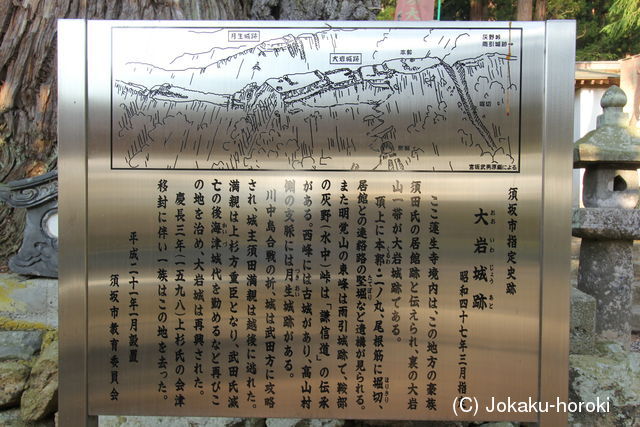 月生城跡
大岩城跡
本郭
灰野峠
雨引城跡
堀切
宮坂武男原編による
須坂市指定史跡
大岩城跡
おおいわじょうあと
昭和四十七年三月指定
ここ蓮生寺境内は、この地方の豪族
須田氏の居館跡と伝えられ、裏の大岩
山一帯が大岩城跡である。
頂上に本郭・二ノ丸、尾根筋に堀切、
くるわ
ほりきり
居館との連絡路の竪堀など遺構が見られる。
たてぼり
また明覚山の東峰は雨引城跡で、鞍部
の灰野(水中)峠は「謙信道」の伝承
がある。西峰には古城があり、高山村
側の支脈には月生城跡がある。
つきおい
川中島合戦の折、城は武田方に攻略
され、城主須田満親は越後に逃れた。
満親は上杉方重臣となり、武田氏滅
亡の後海津城代を勤めるなど再びこ
の地を治め、大岩城は再興された。
慶長三年(一五九八)上杉氏の会津
移封に伴い一族はこの地を去った。
平成二十一年一月設置
須坂市教育委員会
(C) Jokaku-horoki